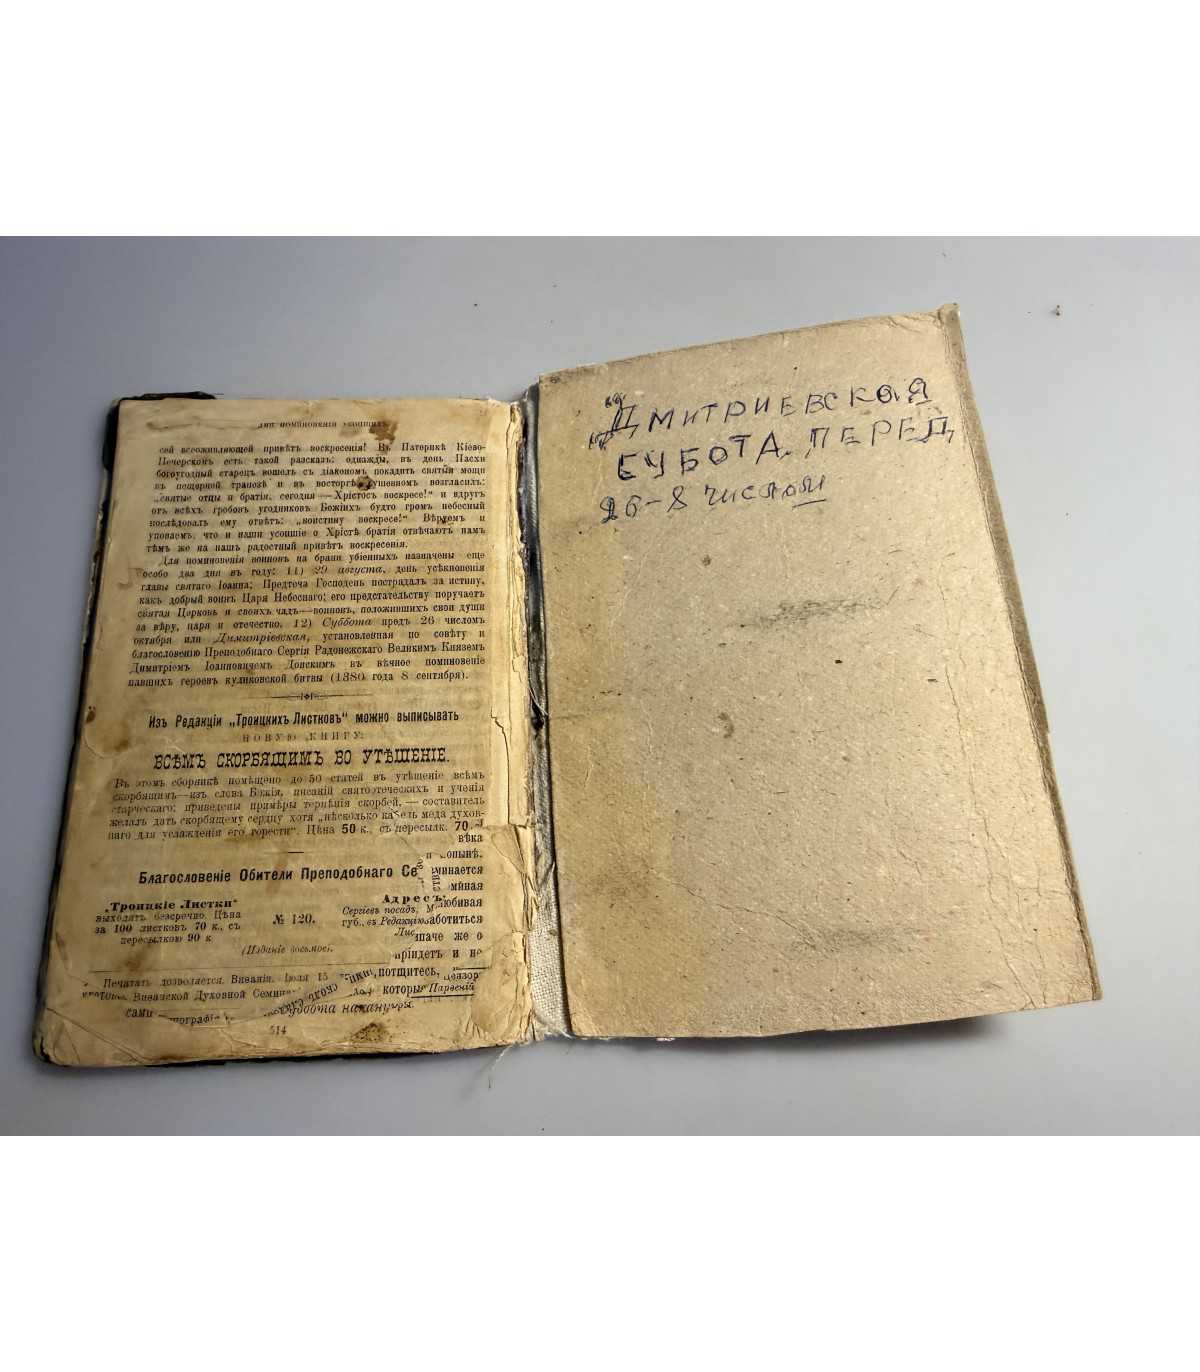 ДНИ ПОМИНОВЕНІЯ УСОПШИХЪ
сей всеоживляющей привѣтъ воскресенія! Въ Патерикѣ Кіево-
Печерскомъ есть такой разсказъ: однажды, въ день Пасхи
богоугодный старецъ вошелъ съ діакономъ покадить святыя мощи
въ пещерной трапезѣ и въ восторгѣ душевномъ возгласилъ:
„святые отцы и братія, сегодня — Хрістосъ воскресе!“ и вдругъ
отъ всѣхъ гробовъ угодниковъ Божіихъ будто громъ небесный
послѣдовалъ ему отвѣтъ: „воистину воскресе!“ Вѣруемъ и
уповаемъ, что и наши усопшіе о Хрістѣ братія отвѣчаютъ намъ
тѣмъ же на нашъ радостный привѣтъ воскресенія.
Для поминовенія воиновъ на брани убіенныхъ назначены еще
особо два дня въ году: 11) 29 августа, день усѣкновенія
главы святаго Іоанна; Предтеча Господень пострадалъ за истину,
какъ добрый воинъ Царя Небеснаго; его предстательству поручаетъ
святая Церковь и своихъ чадъ—воиновъ, положившихъ свои души
за вѣру, царя и отечество. 12) Суббота предъ 26 числомъ
октября или Димитріевская, установленная по совѣту и
благословенію Преподобнаго Сергія Радонежскаго Великимъ Княземъ
Димитріемъ Іоанновичемъ Донскимъ въ вѣчное поминовеніе
павшихъ героевъ куликовской битвы (1380 года 8 сентября).
Изъ Редакціи „Троицкихъ Листковъ“ можно выписывать
НОВУЮ КНИГУ:
ВСѢМЪ СКОРБЯЩИМЪ ВО УТѢШЕНІЕ.
Въ этомъ сборникѣ помѣщено до 50 статей въ утѣшеніе всѣмъ
скорбящимъ—изъ слова Божія, писаній святоотеческихъ и ученія
старческаго; приведены примѣры терпѣнія скорбей, — составитель
желалъ дать скорбящему сердцу хотя „нѣсколько капель меда духов-
наго для услажденія его горести“. Цѣна 50 к., съ пересылк. 70.
вѣка
понынѣ.
Благословеніе Обители Преподобнаго Се минается
„Троицкіе Листки“
выходятъ безсрочно. Цѣна
за 100 листковъ 70 к., съ
пересылкою 90 к
№ 120.
Адресъ:
Сергіевъ посадъ, М любивая
губ., въ Редакцію аботиться
Лис иначе же о
(Изданіе восьмое).
пріидетъ и не
Печатать дозволяется. Виѳанія. Іюля 15 потщитесь, Цензоръ
Виѳанской Духовной Семин которыя Парѳеній
сами типографі Суббота наканунѣ
514
"Дмитриевская
СУБОТА. ПЕРЕД
26-8 числом